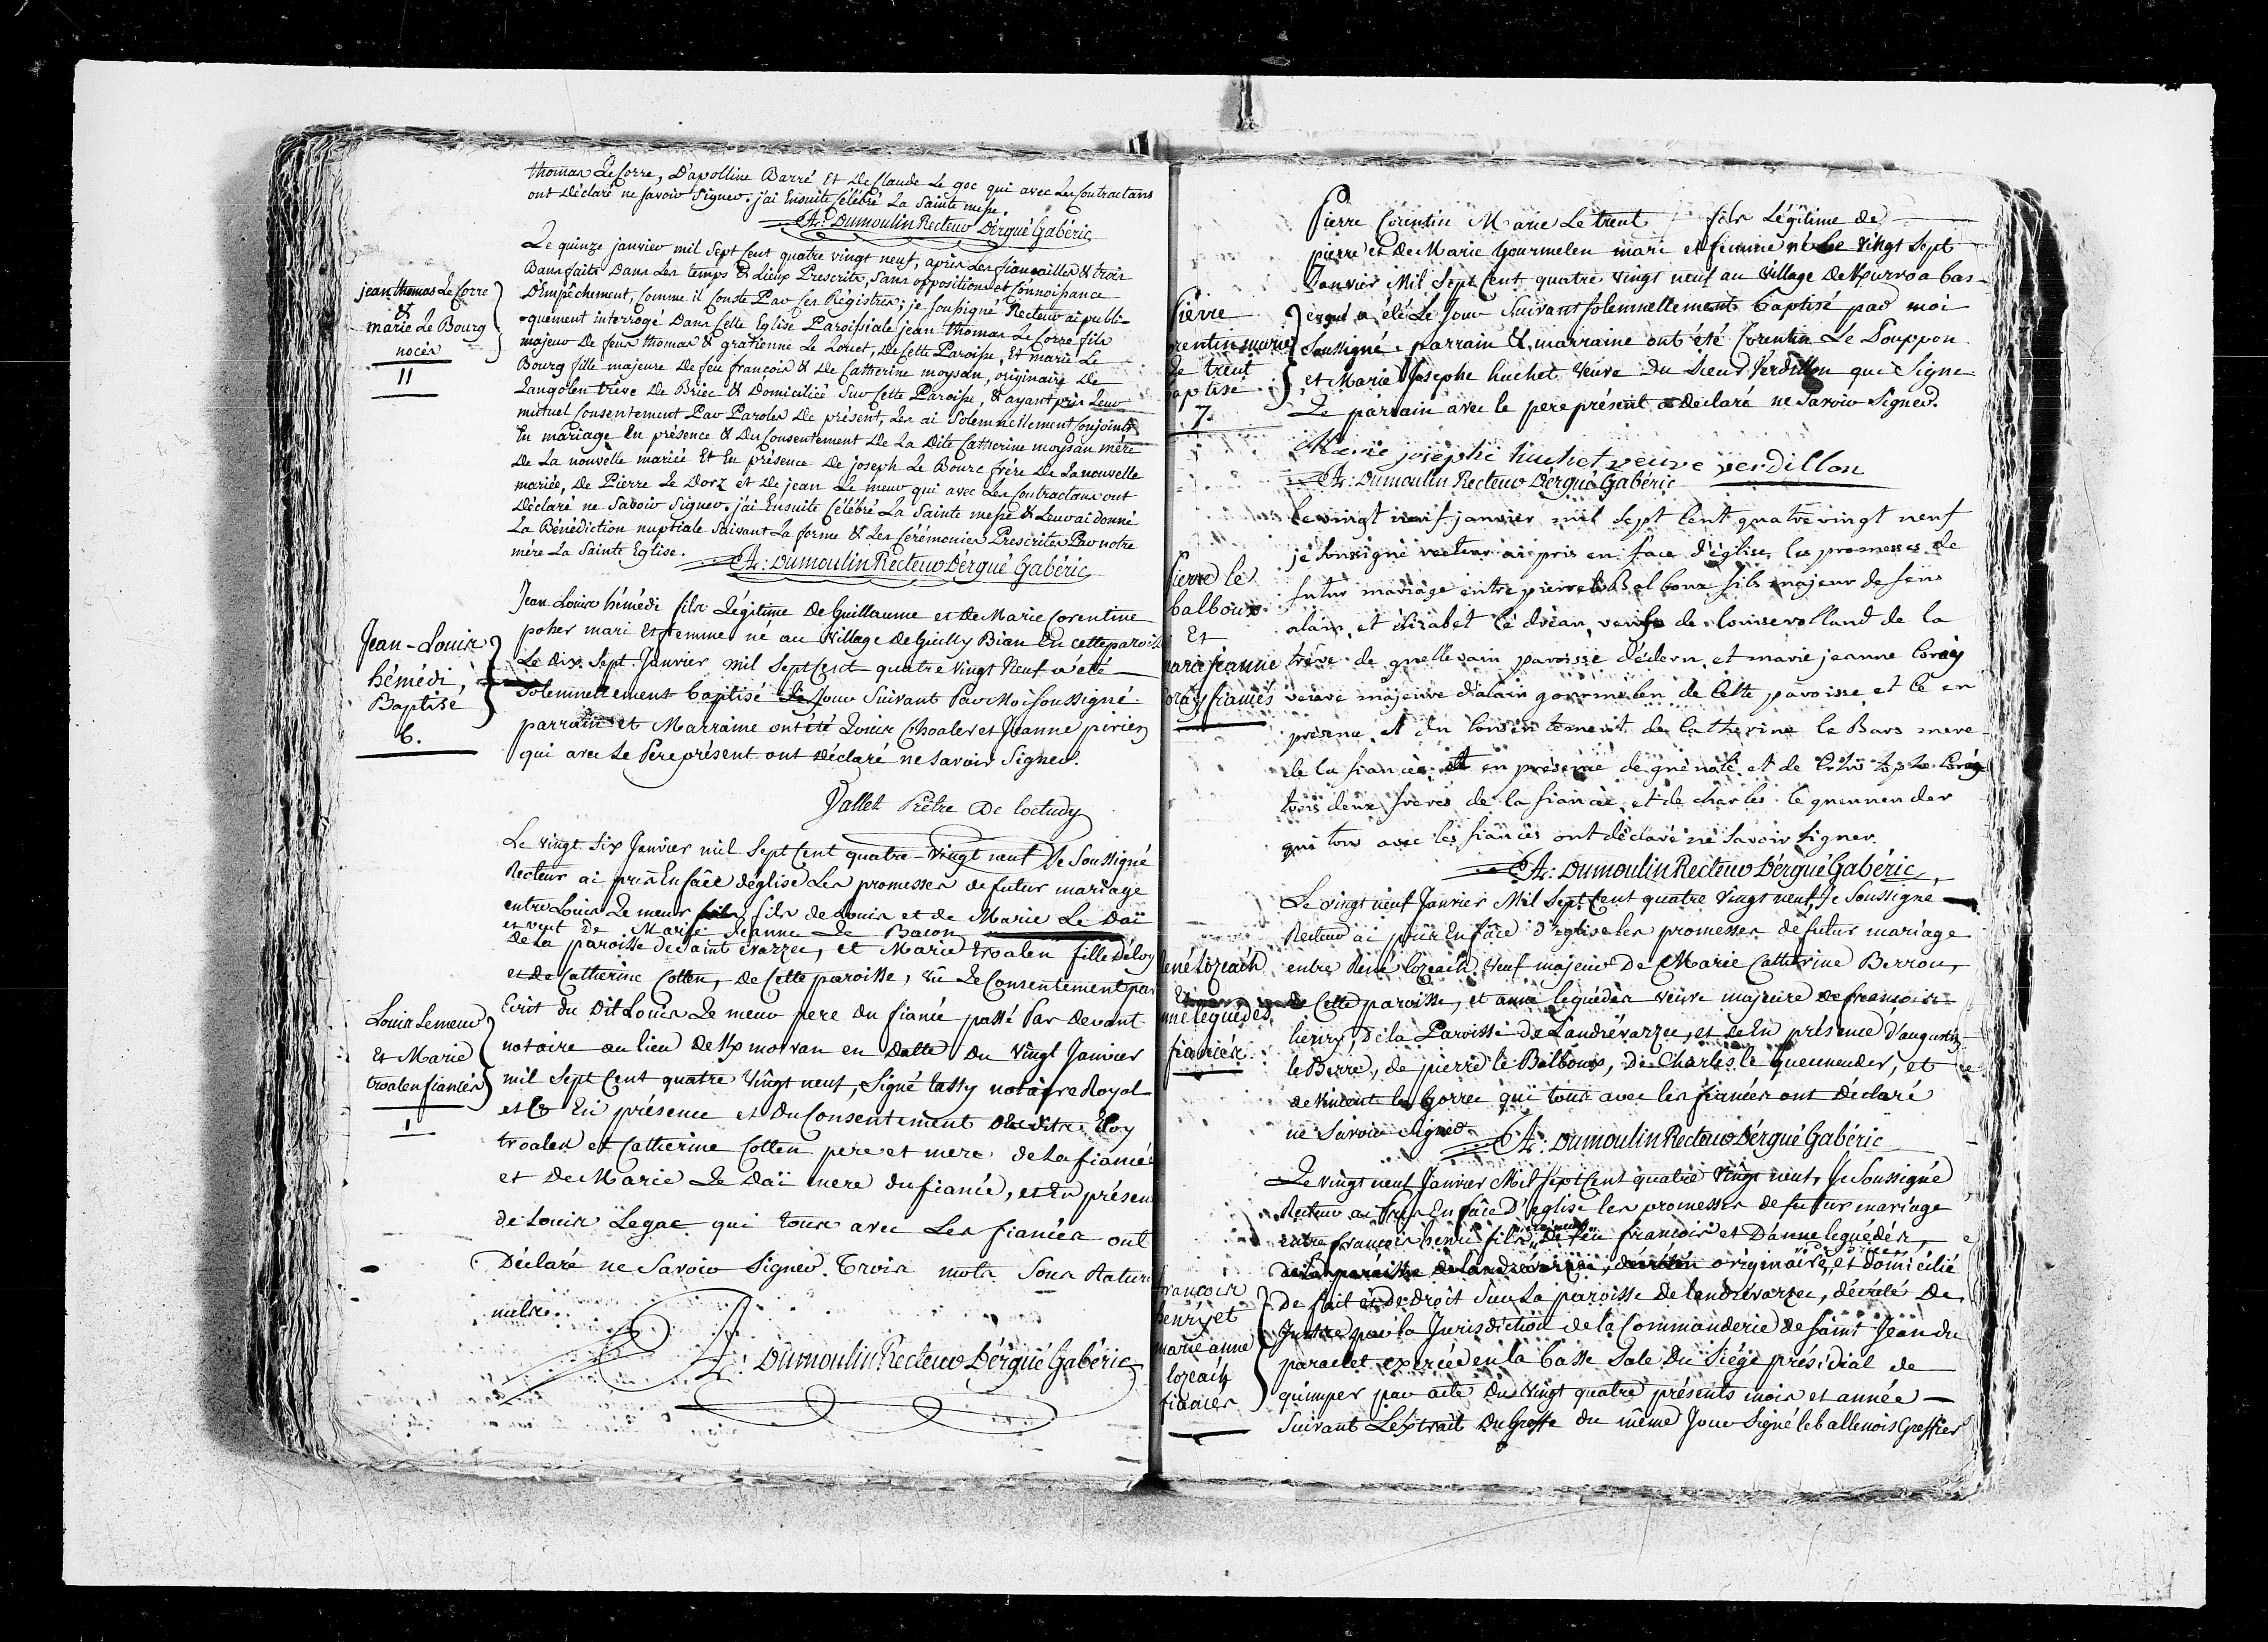 thomas Le Corre, D'apolline Barré Et De Claude Le goc qui avec Les Contractans
ont Déclaré ne Savoir Signer. j'ai Ensuite Célébré La Sainte messe.
A: Dumoulin Recteur D'ergué Gabéric
jean thomas Le Corre
&
marie Le Bourg
noces
11
Le quinze janvier mil Sept Cent quatre vingt neuf, après Les fiançailles & trois
Bans faits Dans Les temps & Lieux Prescrits, Sans opposition et Connoissance
D'Empêchement, Comme il Conste Par Ces Régistres; je Soussigné Recteur ai publi-
-quement interrogé Dans Cette Eglise Paroissiale jean thomas Le Corre fils
majeur De feus thomas & gratienne Le Louet, De Cette Paroisse, Et marie Le
Bourg fille majeure De feu françois & De Catherine moysan, originaire De
Langolen trêve De Briec & Domiciliée Sur Cette Paroisse, & ayant pris Leur
mutuel Consentement Par Paroles De présent, Les ai Solemnellement Conjoints
En mariage En présence & Du Consentement De La Dite Catherine moysan mère
De La nouvelle mariée Et En présence De joseph Le Bourc frère De La nouvelle
mariée, De Pierre Le Dorz et De jean Le meur qui avec Les Contractans ont
Déclaré ne Savoir Signer. j'ai Ensuite Célébré La Sainte messe & Leur ai donné
La Bénédiction nuptiale Suivant La forme & Les Cérémonies Prescrites Par notre
mère La Sainte Eglise.
A: Dumoulin Recteur D'ergué Gabéric
Jean-Louis
hémédi,
Baptisé
6.
Jean Louis hémédi fils Légitime De Guillaume et De Marie Corentine
poher mari Et femme né au Village De Guilly Bian En cette paroisse
Le Dix Sept Janvier mil Sept Cent quatre Vingt Neuf a eté
Solemnellement Baptisé Le Jour Suivant Par Moi Soussigné.
parrain et Marraine ont été Louis Choaler et Jeanne
qui avec Le Pere présent ont Déclaré ne Savoir Signer.
Vallet Prêtre De loctudy
Louis Lemeur
Et Marie
troalen fiancés
1
Le vingt Six Janvier mil Sept Cent quatre-Vingt neuf Je Soussigné
Recteur ai pris En face d'église Les promesses de futur mariage
entre Louis Le meur fils de Louis et de Marie Le Daï
et veuf de Marie Jeanne Le Bacon
De La paroisse de Saint evarzec, et Marie troalen fille D'éloy
et de Catherine Cotten, de Cette paroisse, vû Le Consentement par
Ecrit du Dit Louis Le meur pere du fiancé passé Par Devant
notaire au lieu de morvan en Datte Du Vingt Janvier
mil Sept Cent quatre Vingt neuf, Signé Lassy notaire Royal
et En présence et Du Consentement Des dits Eloy
troalen et Catherine Cotten pere et mere de La fiancée
et De Marie Le Daï mere du fiancé, et En présen
de Louis Legac qui tous avec Les fiancés ont
Déclaré ne Savoir Signer. Trois mots Sous Rature
nuls.
A: Dumoulin Recteur D'ergué Gabéric
Pierre
rentin marie
Le treut
aptisé
7.
Pierre Corentin Marie Le treut fils Légitime de
pierre et De Marie gourmelen mari et femme né Le Vingt Sept
Janvier Mil Sept Cent quatre Vingt neuf au Village De bas
ergué a été Le Jour Suivant Solemnellement Baptisé par moi
Soussigné. parrain & marraine ont été Corentin Le Pouppon
et Marie Josephe huchet Veuve Du Sieur Verdillon qui Signe
Le parrain avec le pere présent a déclaré ne Savoir Signer.
Marie josephe huchet veuve verdillon
A: Dumoulin Recteur D'ergué Gabéric
Pierre le
balbous
Et
marie jeanne
oray fiancés
Le vingt neuf janvier mil sept Cent quatrevingt neuf
je Soussigné recteur ai pris en face d'église les promesses de
futur mariage entre pierre le Balbous fils majeur de feus
alain et élizabet le dréan, veuf de louise rolland de la
trêve de quellevain paroisse d'edern et marie jeanne Coray
veuve majeure d'alain gourmelen de Cette paroisse et ce en
présence et du Consentement de Catherine le Bars mere
de la fiancée et en présence de guénolé et de Coray
tous deux freres de la fiancée et de charles le quemender
qui tous avec les fiancés ont déclaré ne Savoir signer.
A: Dumoulin Recteur D'ergué Gabéric
René Lozeach
nne leguédés
fiancés
Le vingt neuf Janvier Mil Sept Cent quatre Vingt neuf, Je Soussigné
Recteur ai pris En face d'église les promesses de futur mariage
entre René lozeach Veuf majeur De Marie Catherine Berrou,
de Cette paroisse, et anne leguédés veuve majeure de francois
henry, De la Paroisse de Landrévarzec, et de En présence d'augustin
le Berre, de pierre le Balbous, De Charles le quemender, et
de Vincent le Gorrec qui tous avec les fiancés ont déclaré
ne Savoir Signer
A: Dumoulin Recteur D'ergué Gabéric
françois
henry et
marie anne
lozeach
fiancés
Le vingt neuf Janvier Mil Sept Cent quatre Vingt neuf, Je Soussigné
Recteur ai pris En face D'église les promesses de futur mariage
entre françois henri fils mineur De feu françois et D'anne leguédés,
De la paroisse de Landrévarzec, originaire, et domicilié
De fait et de Droit Sur La paroisse De landrévarzec, décrété De
Justice par la Jurisdiction de la Commanderie de Saint Jean du
paraclet exercée en la basse Sale Du Siége présidial de
quimper par acte Du Vingt quatre présents mois et année
Suivant L'extrait Du Greffe du même Jour Signé leballenois Greffier